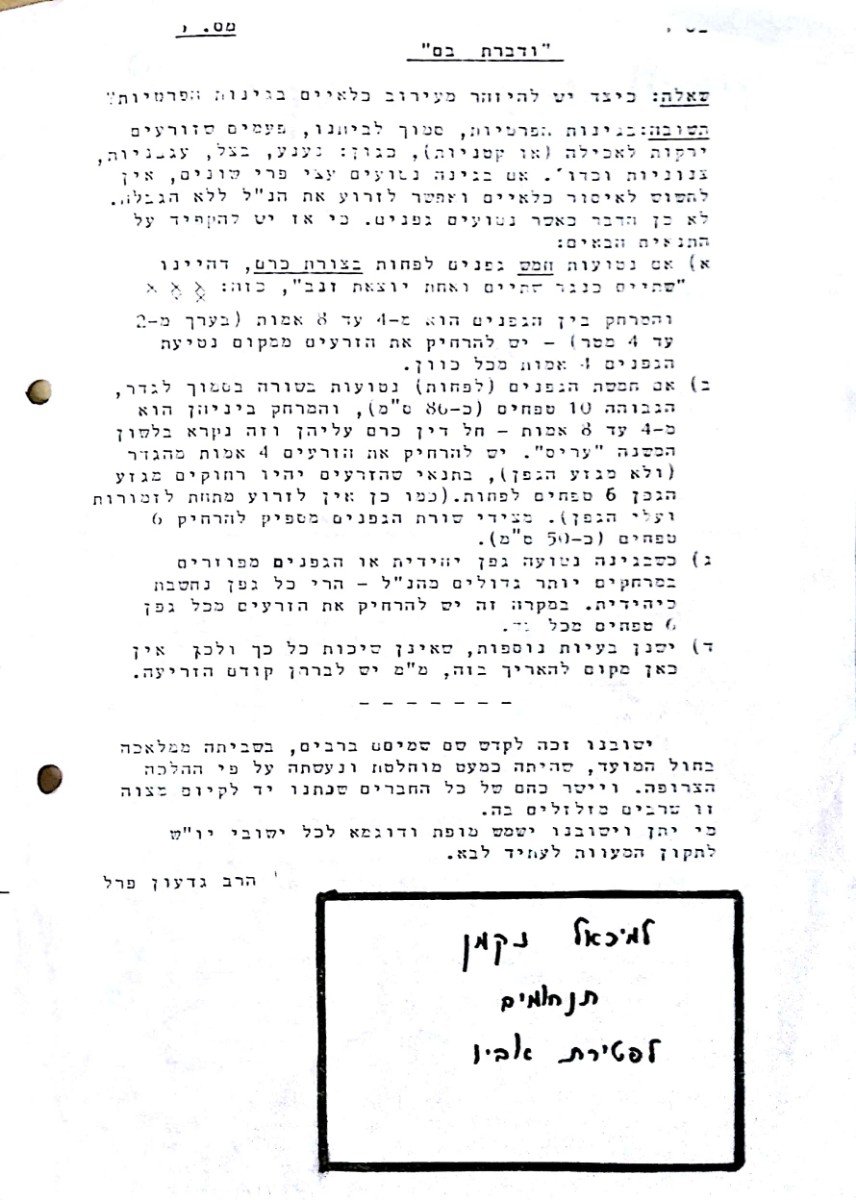 מס. י
"ודברת בם"
שאלה: כיצד יש להיזהר מעירוב כלאיים בגינות הפרטיות?
תשובה: בגינות הפרטיות, סמוך לביתנו, פעמים שזורעים
ירקות לאכילה (או קטניות), כגון: נענע, בצל, עגבניות,
צנוניות וכדו'. אם בגינה נטועים עצי פרי שונים, אין
לחשוש לאיסור כלאיים ואפשר לזרוע את הנ"ל ללא הגבלה.
לא כן הדבר כאשר נטועים גפנים. כי אז יש להקפיד על
התנאים הבאים:
א) אם נטועות חמש גפנים לפחות בצורת כרם, דהיינו
"שתיים כנגד שתיים ואחת יוצאת זנב", כזה: x x x x x
והמרחק בין הגפנים הוא מ-4 עד 8 אמות (בערך מ-2
עד 4 מטר) - יש להרחיק את הזרעים ממקום נטיעת
הגפנים 4 אמות מכל כוון.
ב) אם חמשת הגפנים (לפחות) נטועות בשורה בסמוך לגדר,
הגבוהה 10 טפחים (כ-86 ס"מ), והמרחק ביניהן הוא
מ-4 עד 8 אמות - חל דין כרם עליהן וזה נקרא בלשון
המשנה "עריס". יש להרחיק את הזרעים 4 אמות מהגדר
(ולא מגזע הגפן), בתנאי שהזרעים יהיו רחוקים מגזע
הגפן 6 טפחים לפחות. (כמו כן אין לזרוע מתחת לזמורות
ועלי הגפן). מצידי שורת הגפנים מספיק להרחיק 6
טפחים (כ-50 ס"מ).
ג) כשבגינה נטועה גפן יחידית או הגפנים מפוזרים
במרחקים יותר גדולים מהנ"ל - הרי כל גפן נחשבת
כיחידית. במקרה זה יש להרחיק את הזרעים מכל גפן
6 טפחים מכל
ד) ישנן בעיות נוספות, שאינן שיכות כל כך ולכן אין
כאן מקום להאריך בזה, מ"מ יש לבררן קודם הזריעה.
- - - - - - -
ישובנו זכה לקדש שם שמים ברבים, בשביתה ממלאכה
בחול המועד, שהיתה כמעט מוחלטת ונעשתה על פי ההלכה
הצרופה. ויישר כחם של כל החברים שנתנו יד לקיום מצוה
זו שרבים מזלזלים בה.
מי יתן וישובנו ישמש מופת ודוגמא לכל ישובי יו"ש
לתקון המעוות לעתיד לבא.
הרב גדעון פרל
למיכאל נקמן
תנחומים
לפטירת אביו